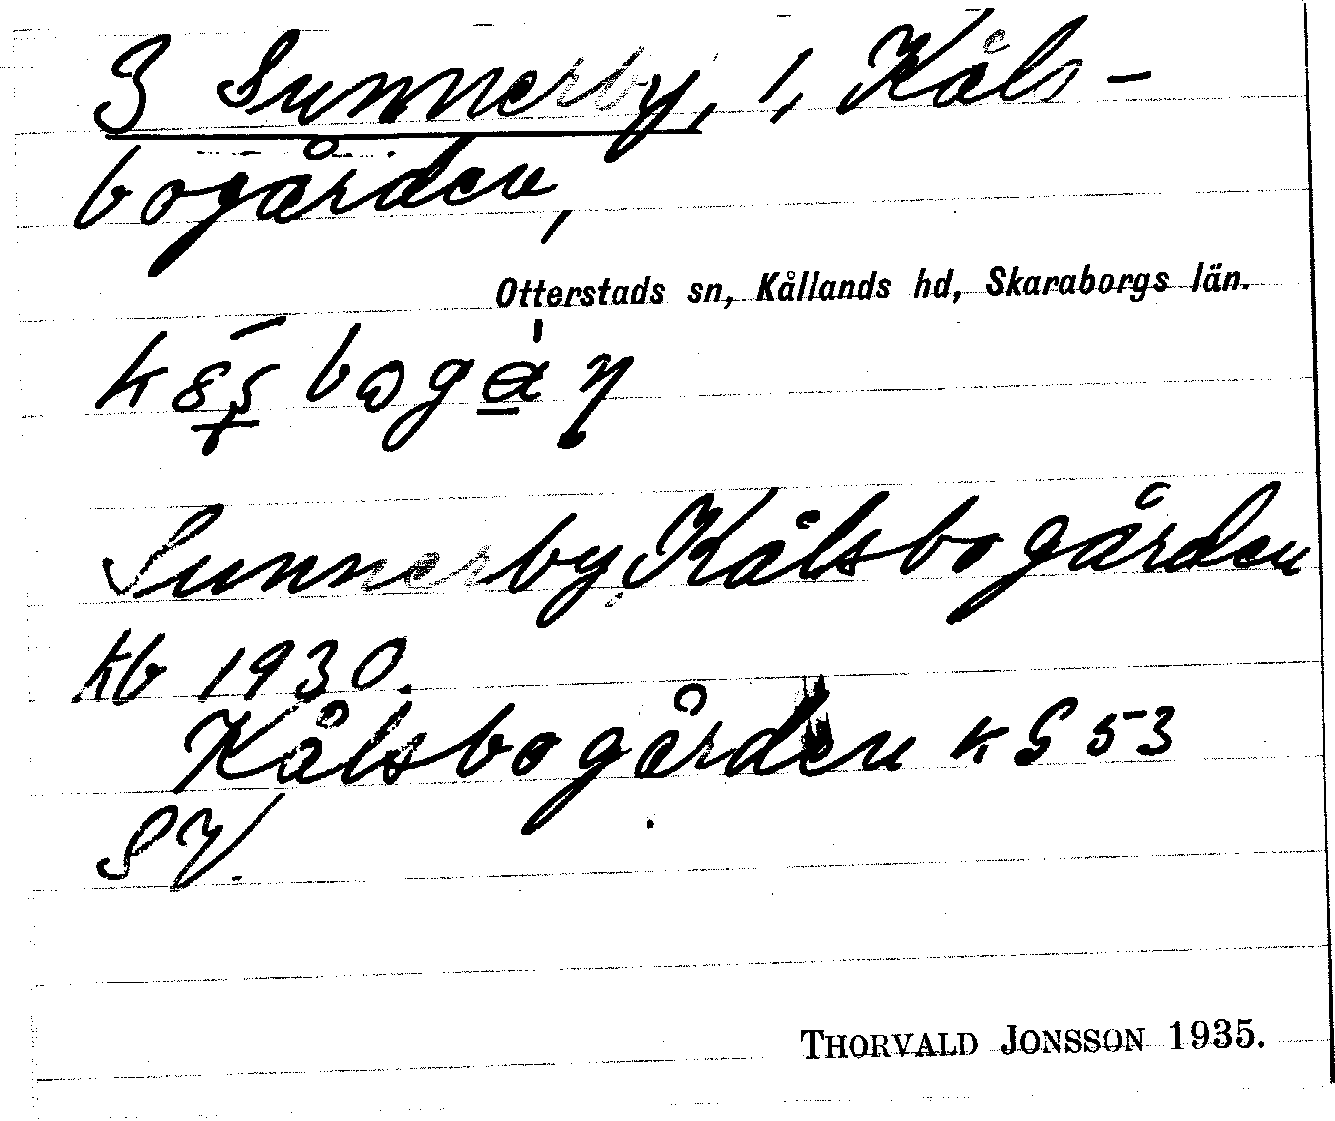 3 Sunnerby, 1, Kåls-
bogården,
Otterstads sn, Kållands hd, Skaraborgs län.
Sunnerby, Kålsbogården
kb 1930.
Kålsbogården k G 53
SV.
THORVALD JONSSON 1935.